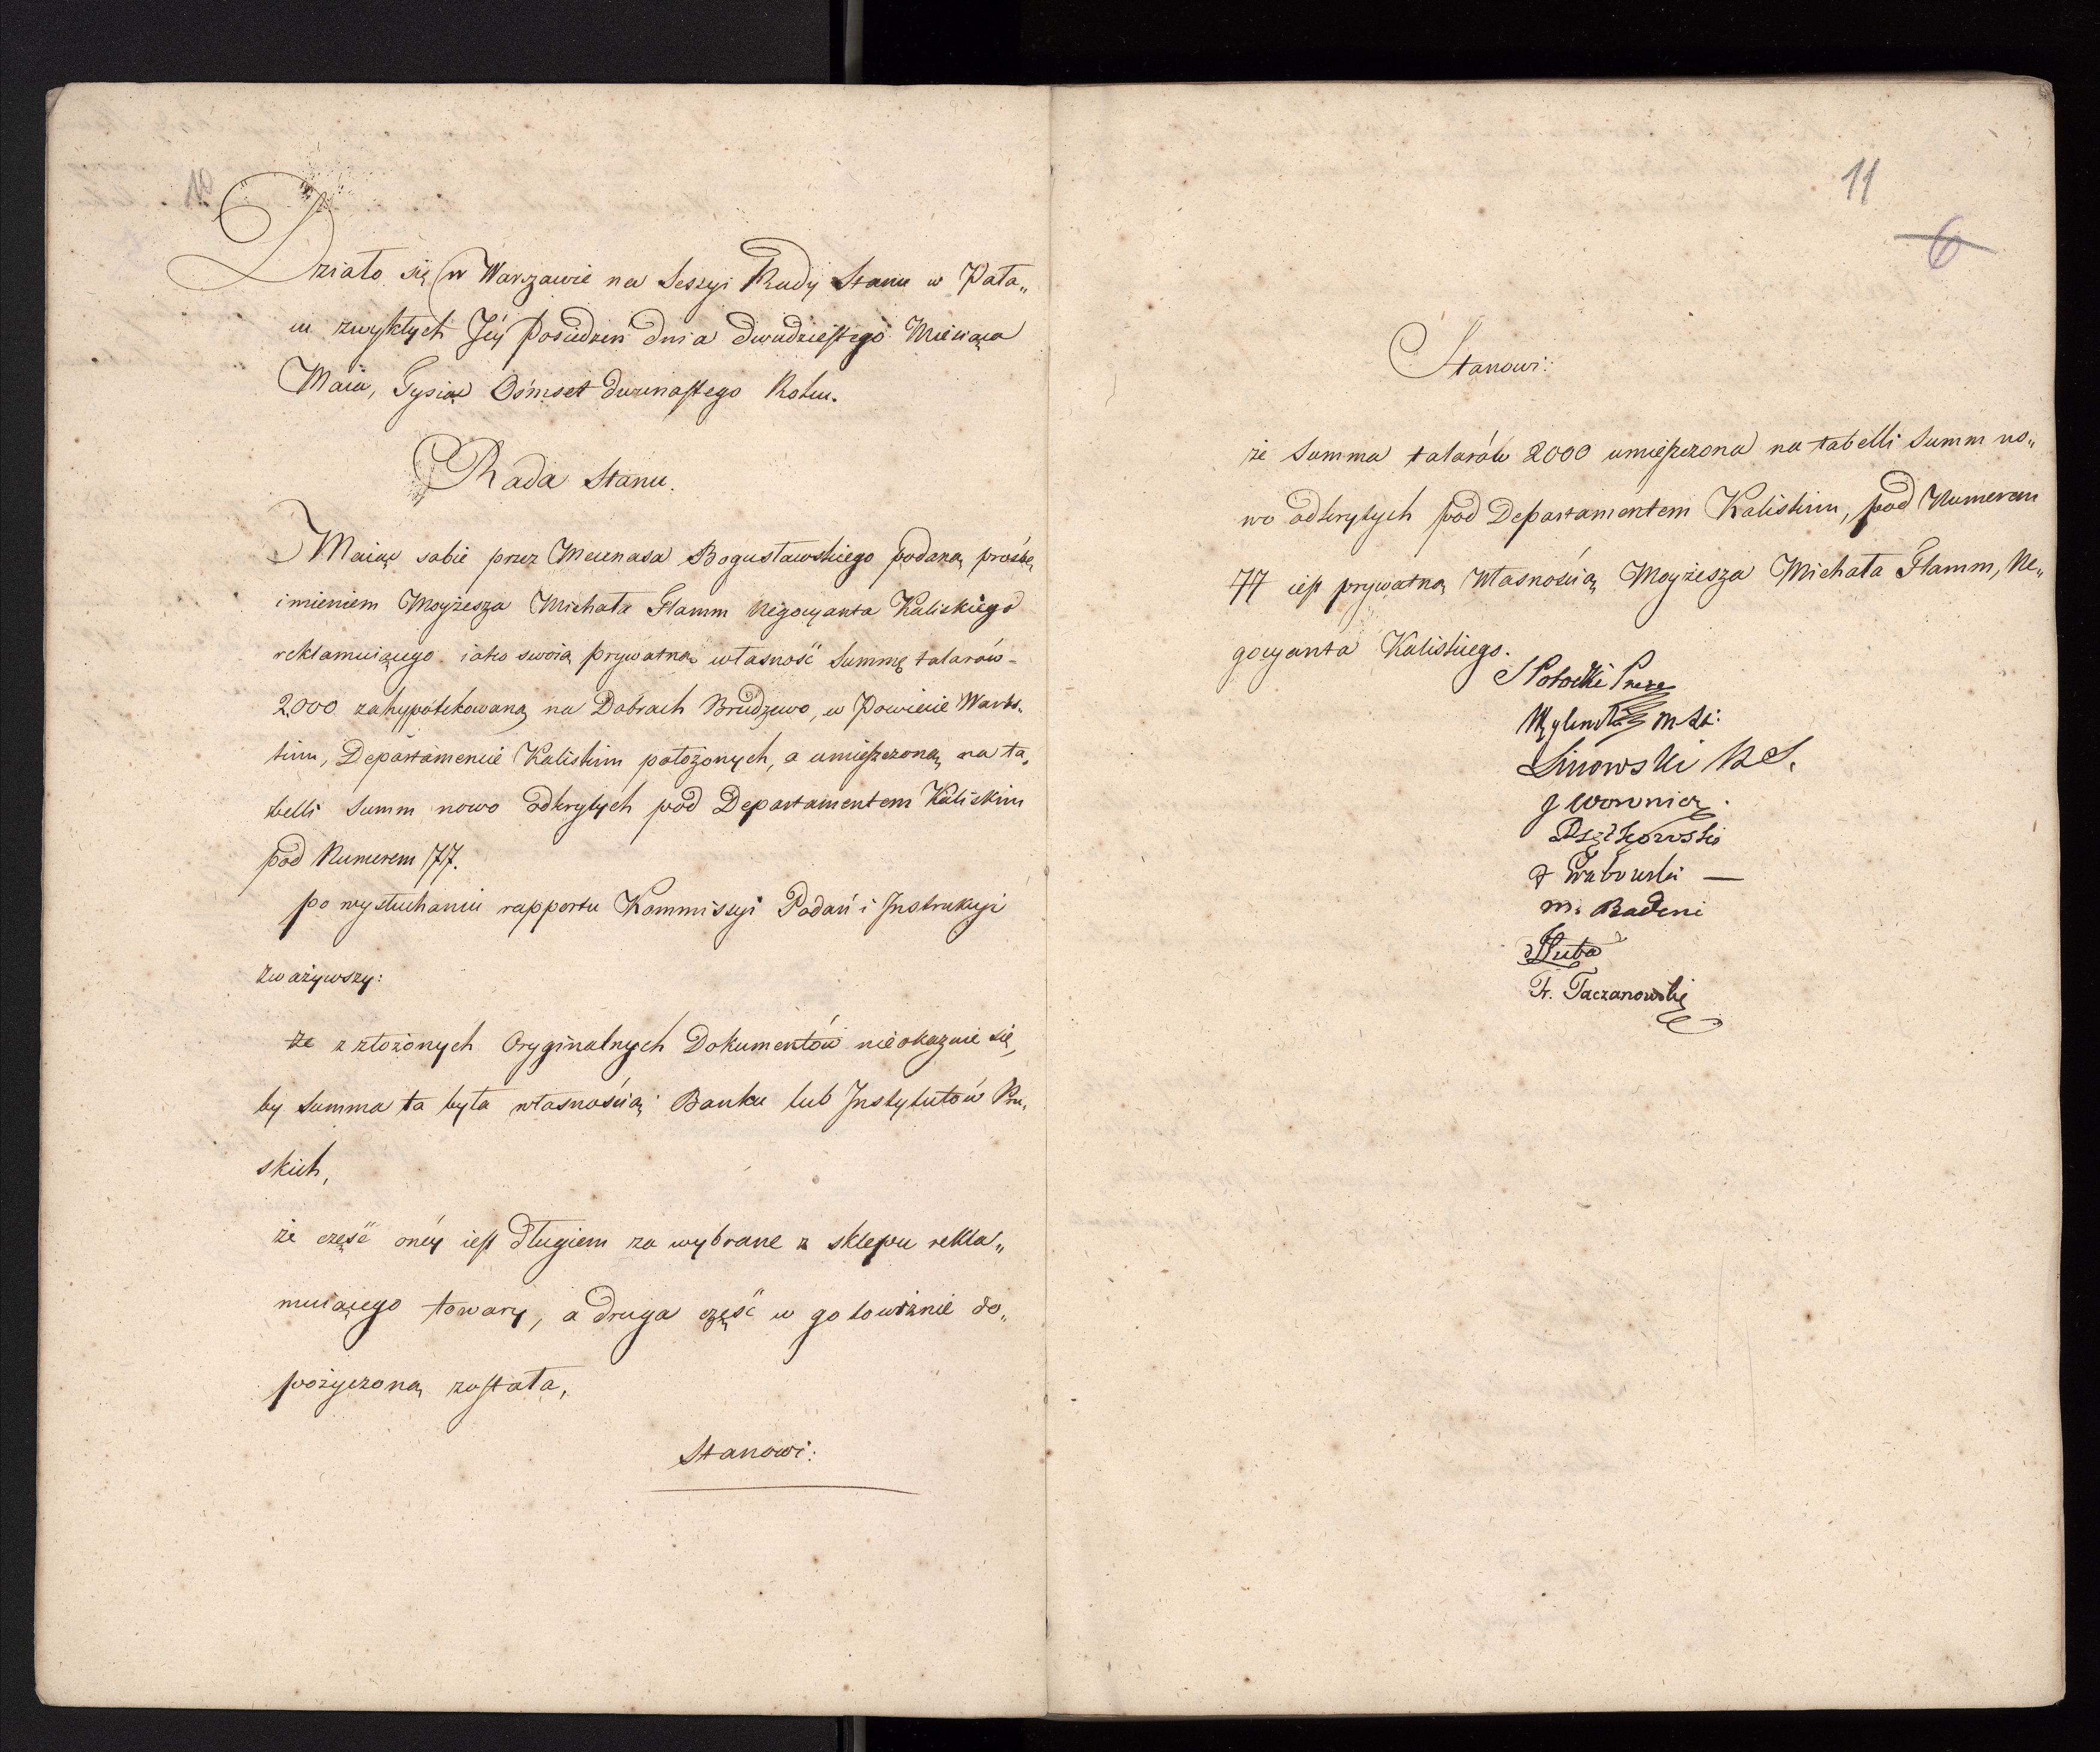 10
Działo się w Warszawie na Sessyi Rady Stanu w Pała„
cu zwykłych Jéy Posiedzeń dnia dwudziestego Miesiąca
Maia, Tysiąc Ośmset dwunastego Roku.
Rada Stanu.
Maiąc sobie przez Mecenasa Bogusławskiego podaną proźbę,
imieniem Moyżesza Michała Flamm Negocyanta Kaliskiego
reklamuiącego iako swoią prywatną własność Summę talarów
2000 zahypotekowaną na Dobrach Brudzewo, w Powiecie Warts„
kim, Departamencie Kaliskim położonych, a umieszczoną na ta„
belli Summ nowo odkrytych pod Departamentem Kaliskim
pod Numerem 77.
po wysłuchaniu rapportu Kommissyi Podań i Instrukcyi
zważywszy:
że z złożonych Oryginalnych Dokumentów nieokazuie się,
by Summa ta była własnością Banku lub Instytutów Pru„
skich,
że część onéy iest długiem za wybrane z sklepu rekla„
muiącego towary, a druga część w gotowiźnie do„
pożyczoną została,
Stanowi:
11
6
Stanowi:
że Summa talarów 2000 umieszczona na tabelli Summ no„
wo odkrytych pod Departamentem Kaliskim, pod Numerem
77 iest prywatną własnością Moyżesza Michała Flamm, Ne„
gocyanta Kaliskiego.
S Potocki Preze
Węgleński M Sk:
Linowski R S.
J Woronicz.
Grabowski —
M. Badeni
Fr. Taczanowski